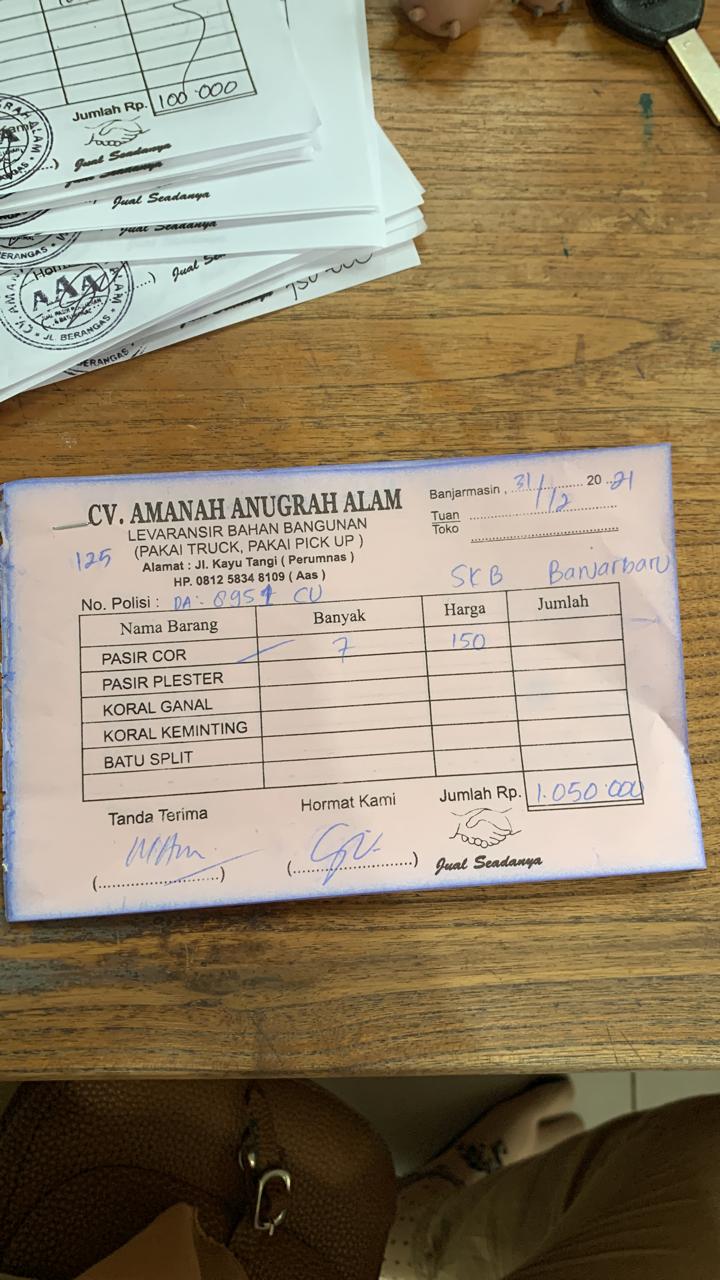 Jumlah Rp. 100.000
Jual Seadanya
Jual Seadanya
Jual Seadanya
BERANGAS
AAA
JL. BERANGAS
BERANGAS
CV. AMANAH ANUGRAH ALAM
LEVARANSIR BAHAN BANGUNAN
(PAKAI TRUCK, PAKAI PICK UP )
Alamat : Jl. Kayu Tangi ( Perumnas )
HP. 0812 5834 8109 ( Aas )
125
Banjarmasin , 31/12 20 21
Tuan
Toko
SKB Banjarbaru
No. Polisi : DA- 8951 CU
Nama Barang Banyak Harga Jumlah
PASIR COR 7 150
PASIR PLESTER
KORAL GANAL
KORAL KEMINTING
BATU SPLIT
Tanda Terima Hormat Kami Jumlah Rp. 1.050.000
(........................) (........................)
Jual Seadanya